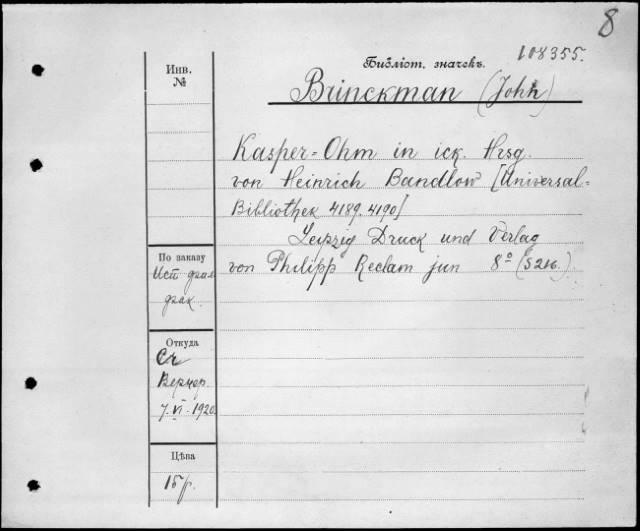 8
Инв.
№
Библіот. значекъ. 108355.
Brinckman (John)
Kasper-Ohm in ick. Hrsg.
von Heinrich Bandlow [Universal-
Bibliothek 4189. 4190]
Leipzig Druck und Verlag
von Philipp Reclam jun 8° (S 216.)
По заказу
Ист фил
фак.
Откуда
Сч
Вернер
7.VI.1920
Цѣна
15р.